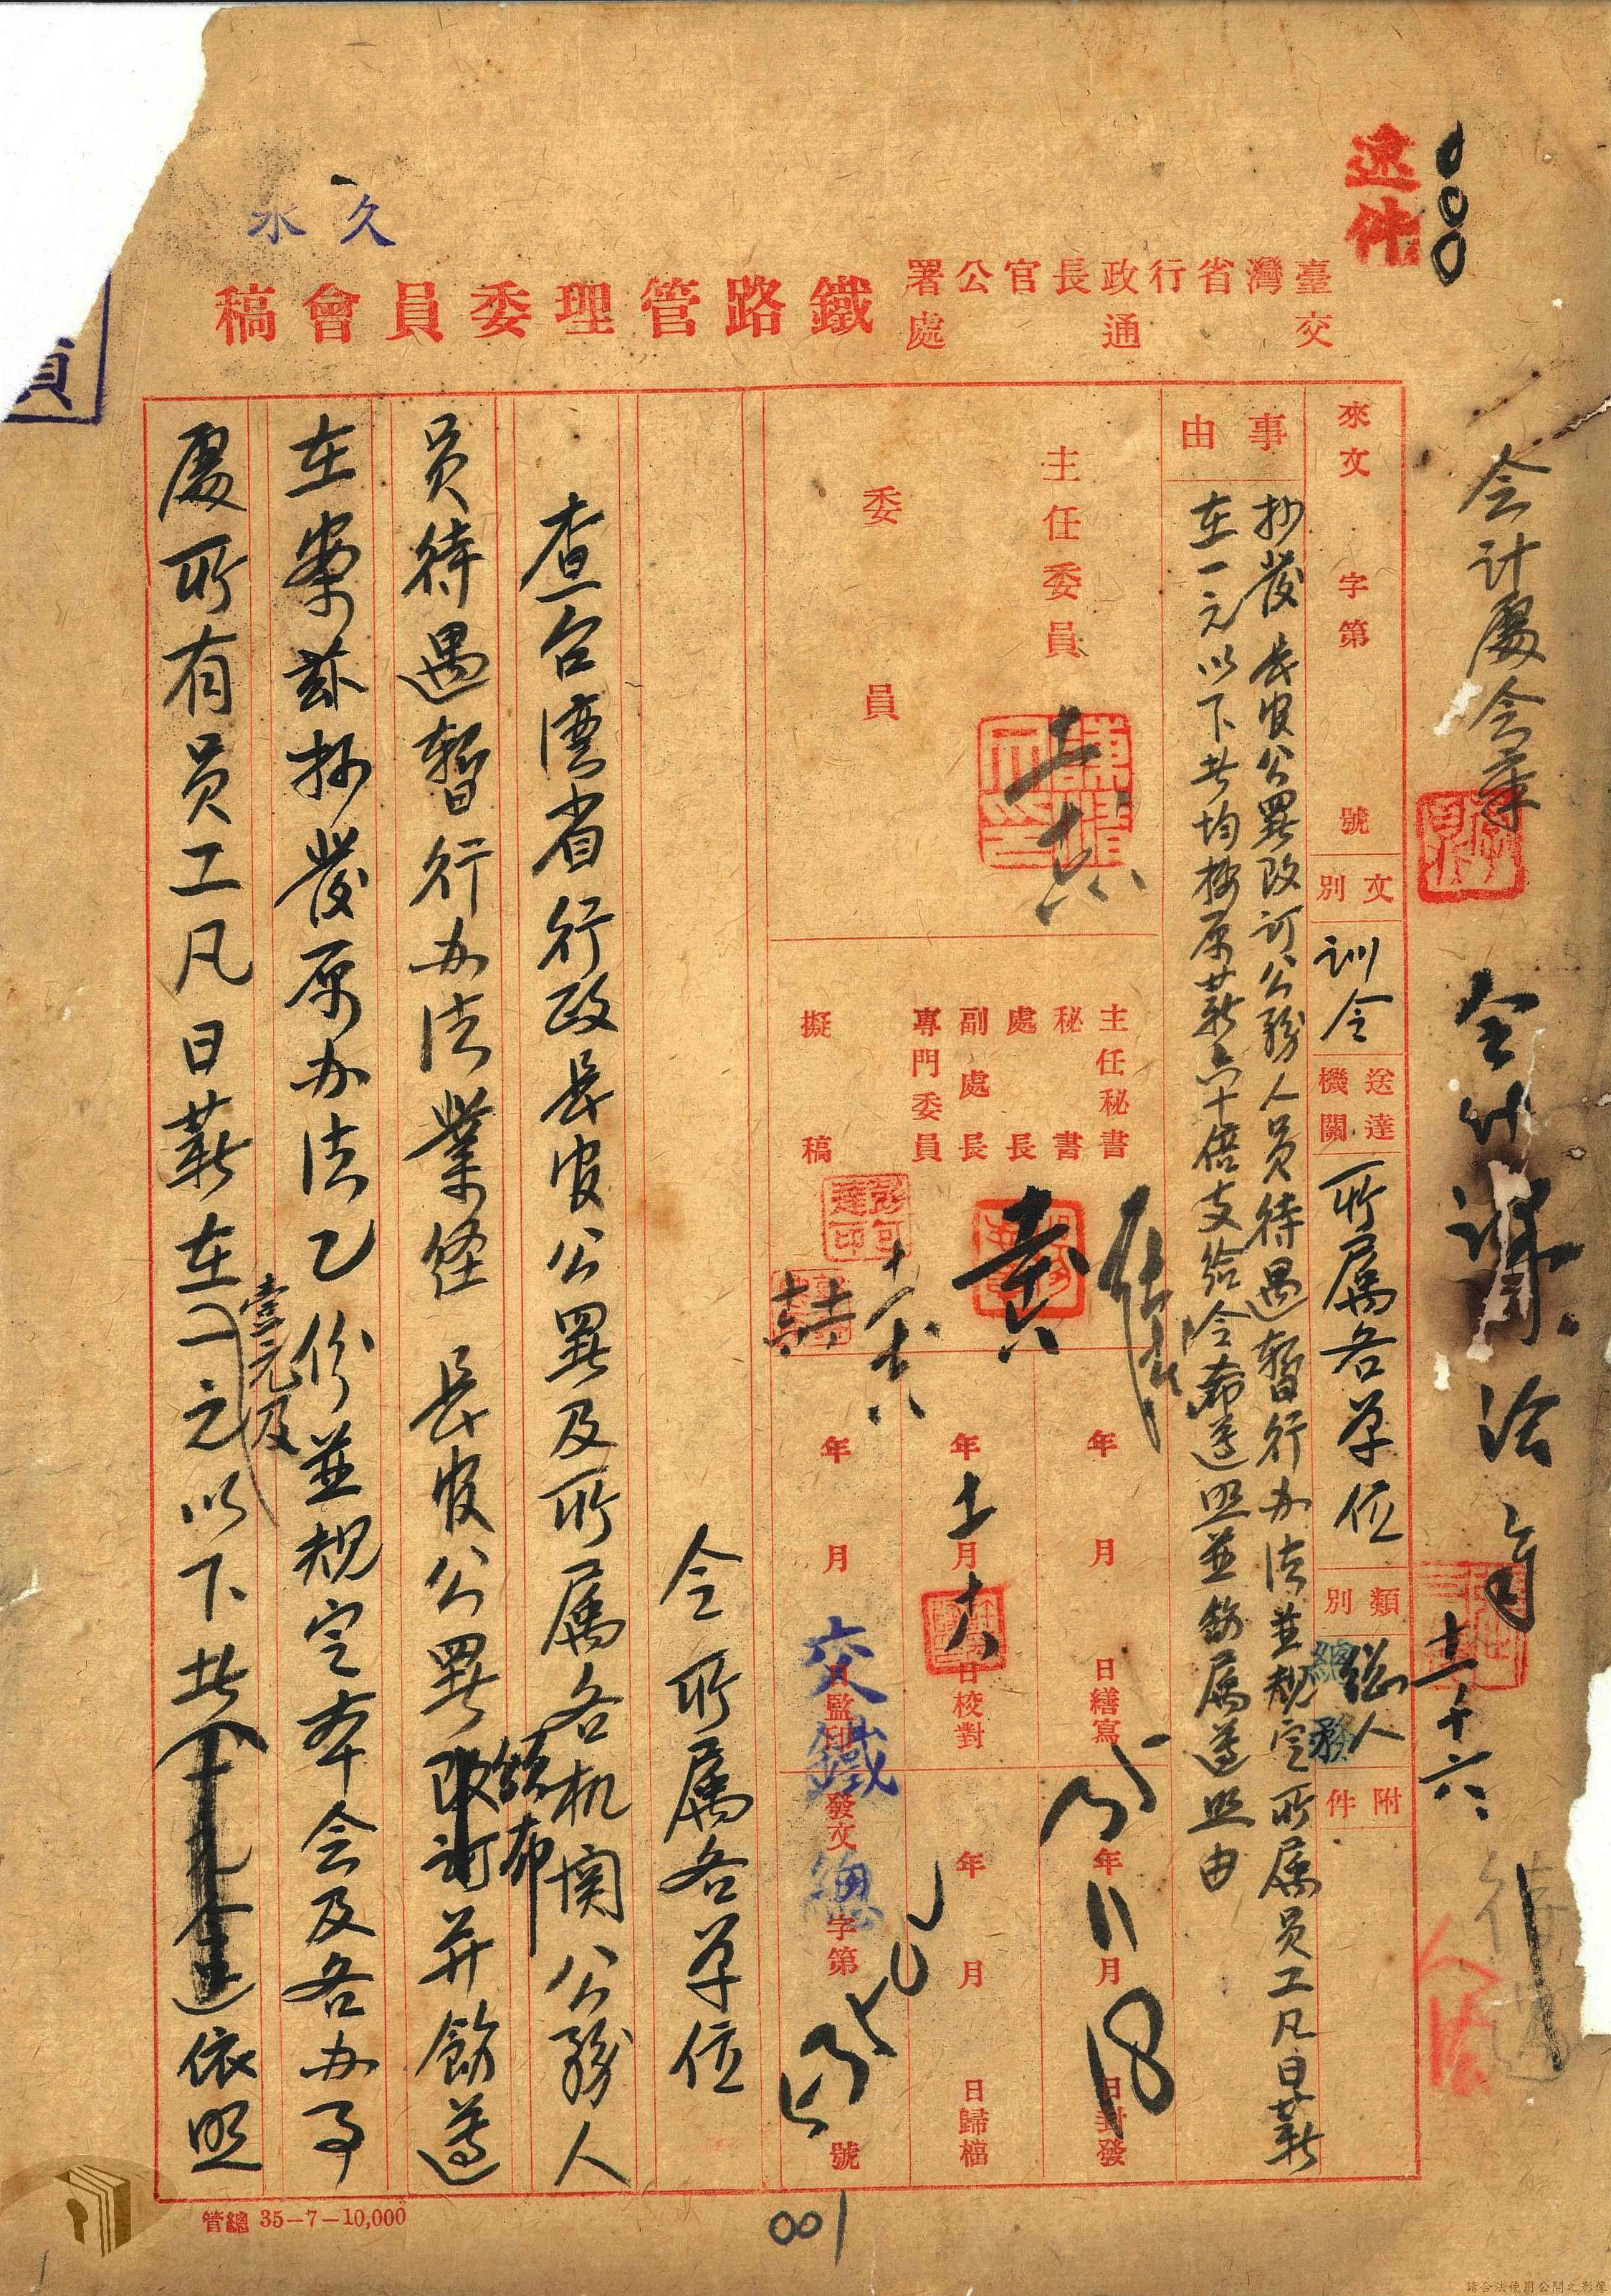 速件
久永
臺灣省行政長官公署
交通處
鐵路管理委員會稿
會計處會章
來文 字第 號
文別 訓令
送達機關 所屬各單位
類別 總人
總務
附件
事由
抄發長官公署改訂公務人員待遇暫行办法並規定所屬員工凡日薪
在一元以下共均按原薪六十倍支給令希遵照並飭屬遵照由
主任委員
委員
主任秘書
秘書
處長
副處長
專門委員
擬稿
年 月 日繕寫
年 十一月 十八日校對
年 月 日監印
35年11月18日封發
年 月 日歸檔
發文 字第 號
交鐵 總
令所屬各單位
查台灣省行政長官公署及所屬各机関公務人
員待遇暫行办法業經 長官公署改訂頒布并飭遵
在案茲抄發原办法乙份並規定本会及各办事
處所有員工凡日薪在一元壹元及以下共
依照
管總 35-7-10,000
001
請合法使用公開之影像